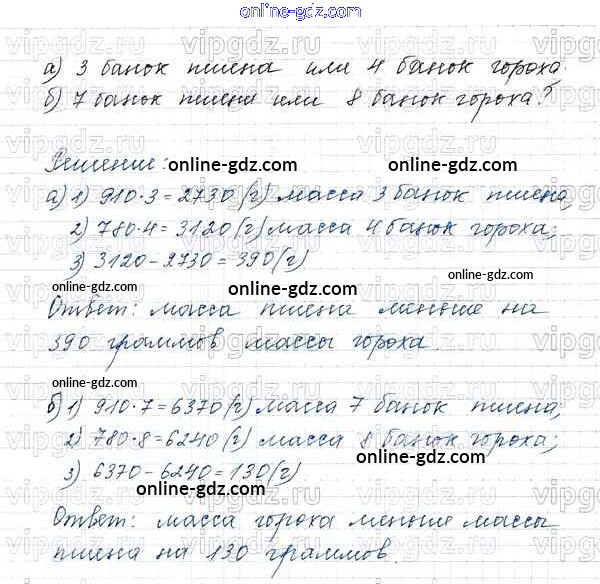 online-gdz.com
а) 3 банок пшена или 4 банок гороха.
б) 7 банок пшена или 8 банок гороха?
Решение:
online-gdz.com online-gdz.com
а) 1) 910·3=2730(г) масса 3 банок пшена,
2) 780·4=3120(г) масса 4 банок гороха;
3) 3120-2730=390(г)
online-gdz.com
Ответ: масса пшена меньше на
390 граммов массы гороха
online-gdz.com
online-gdz.com
б) 1) 910·7=6370(г) масса 7 банок пшена,
2) 780·8=6240(г) масса 8 банок гороха;
online-gdz.com
3) 6370-6240=130(г)
online-gdz.com
Ответ: масса гороха меньше массы
пшена на 130 граммов.
online-gdz.com